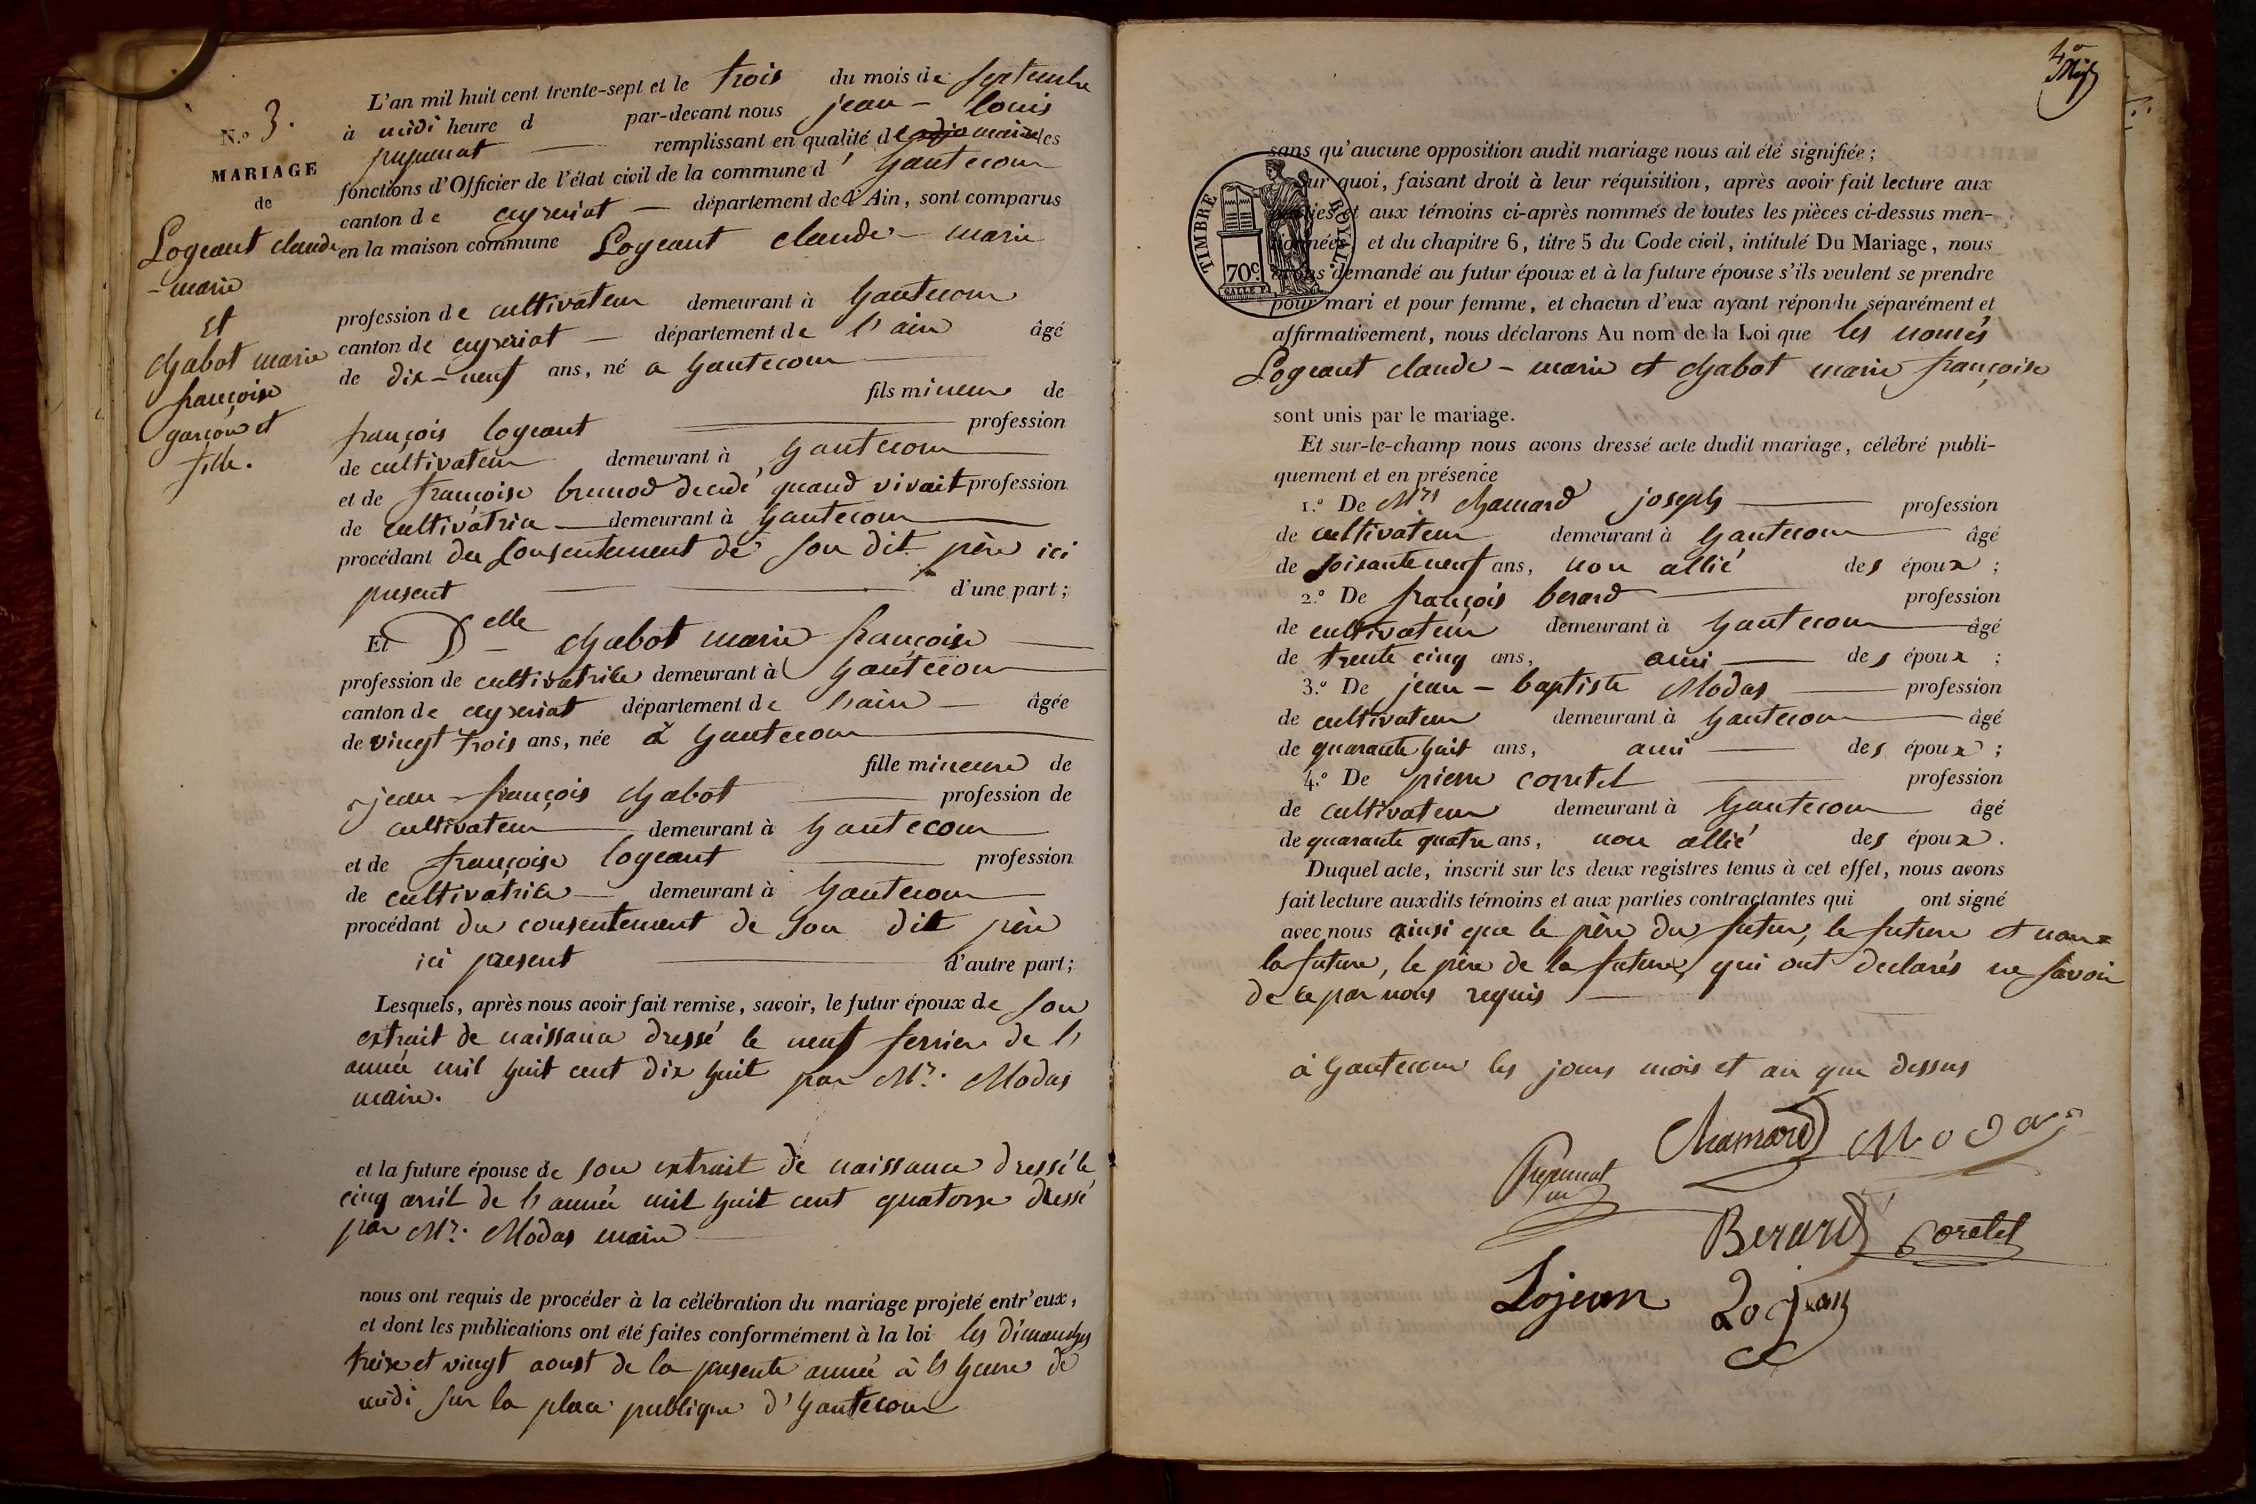 N.º 3.
MARIAGE
de
Logeant claude
-marie
et
chabot marie
françoise
garçon et
fille.
L'an mil huit cent trente-sept et le trois du mois de septembre
à midi heure d par-devant nous jean-louis
remplissant en qualité de maire les
fonctions d'Officier de l'état civil de la commune d'hautecour
canton de ceyzeriat département de l'Ain, sont comparus
en la maison commune Logeant claude-marie
profession de cultivateur demeurant à hautecour
canton de ceyzeriat département de l'ain âgé
de dix-neuf ans, né a hautecour
fils mineur de
françois logeant profession
de cultivateur demeurant à hautecour
et de françoise brunod decedé quand vivait profession
de cultivatrice demeurant à hautecour
procédant du consentement de son dit père ici
present d'une part;
Et Delle chabot marie françoise
profession de cultivatrice demeurant à hautecour
canton de ceyzeriat département de l'ain âgée
de vingt trois ans, née à hautecour
fille mineure de
jean-françois chabot profession de
cultivateur demeurant à hautecour
et de françoise logeant profession
de cultivatrice demeurant à hautecour
procédant du consentement de son dit père
ici present d'autre part;
Lesquels, après nous avoir fait remise, savoir, le futur époux de son
extrait de naissance dressé le neuf fevrier de l'
année mil huit cent dix huit par Mr. Modas
maire.
et la future épouse de son extrait de naissance dressé le
cinq avril de l'année mil huit cent quatorze dressé
par Mr. Modas maire
nous ont requis de procéder à la célébration du mariage projeté entr'eux,
et dont les publications ont été faites conformément à la loi les dimanches
treize et vingt aoust de la presente année à l'heure de
midi sur la place publique d'hautecour
TIMBRE ROYAL.
70c.
sans qu'aucune opposition audit mariage nous ait été signifiée;
Sur quoi, faisant droit à leur réquisition, après avoir fait lecture aux
parties et aux témoins ci-après nommés de toutes les pièces ci-dessus men-
tionnées, et du chapitre 6, titre 5 du Code civil, intitulé Du Mariage, nous
avons demandé au futur époux et à la future épouse s'ils veulent se prendre
pour mari et pour femme, et chacun d'eux ayant répondu séparément et
affirmativement, nous déclarons Au nom de la Loi que les només
Logeant claude-marie et chabot marie françoise
sont unis par le mariage.
Et sur-le-champ nous avons dressé acte dudit mariage, célébré publi-
quement et en présence
1.º De Mrs chamard joseph profession
de cultivateur demeurant à hautecour âgé
de soisante neuf ans, non allié des époux;
2.º De françois berard profession
de cultivateur demeurant à hautecour âgé
de trente cinq ans, ami des époux;
3.º De jean-baptiste Modas profession
de cultivateur demeurant à hautecour âgé
de quarante huit ans, ami des époux;
4.º De pierre corretel profession
de cultivateur demeurant à hautecour âgé
de quarante quatre ans, non allié des époux.
Duquel acte, inscrit sur les deux registres tenus à cet effet, nous avons
fait lecture auxdits témoins et aux parties contractantes qui ont signé
avec nous ainsi que le père du futur, le future et non
la future, le père de la future, qui ont declarés ne savoir
de ce par nous requis
à hautecour les jours mois et an que dessus
Chamard Modas
Berard Coretel
Lojean Logean